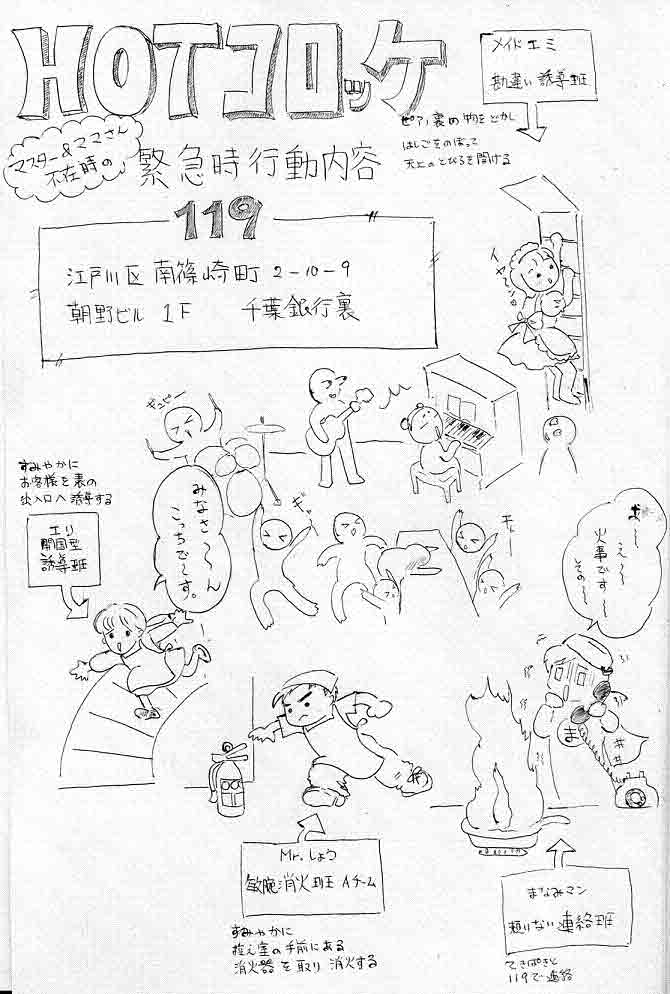 HOTコロッケ
マスター&ママさん
不在時の
緊急時行動内容
119
江戸川区南篠崎町2-10-9
朝野ビル 1F 千葉銀行裏
メイドエミ
勘違い誘導班
ピアノ裏の物をどかし
はしごをのぼって
天上のとびらを開ける
イヤーン
ギュピー
ギャ
モー
すみやかに
お客様を表の
出入口へ誘導する
エリ
開国型
誘導班
みなさ〜ん
こっちで〜す。
え〜
火事です〜
その〜
ま
Mr.しょう
敏腕消火班 Aチーム
すみやかに
控え室の手前にある
消火器を取り消火する
まなみマン
頼りない連絡班
てきぱきと
119で連絡